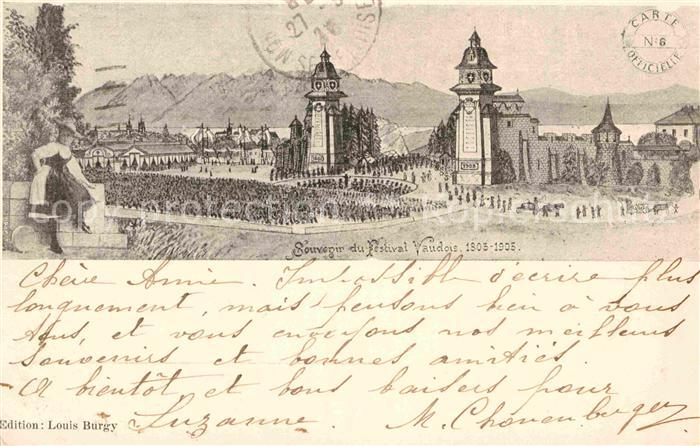 CARTE
N° 6
OFFICIELLE
27
Souvenir du Festival Vaudois. 1803-1903.
Chère Annie. Impossible d'écrire plus
longuement, mais pensons bien à vous
tous, et vous envoyons nos meilleurs
souvenirs et bonnes amitiés.
A bientôt et bons baisers pour
Suzanne. M.
Edition: Louis Burgy